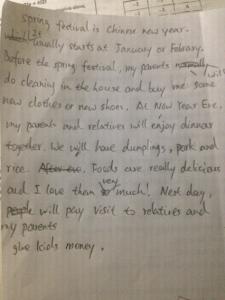 Spring festival is Chinese new year.
It usually starts at January or Febrary.
Before the spring festival, my parents will
do cleaning in the house and buy me some
new clothes or new shoes. At New Year Eve,
my parents and relatives will enjoy dinner
together. We will have dumplings, pork and
rice. Foods are really delicious
and I love them very much! Next day,
people will pay visit to relatives and
my parents
give kids money.